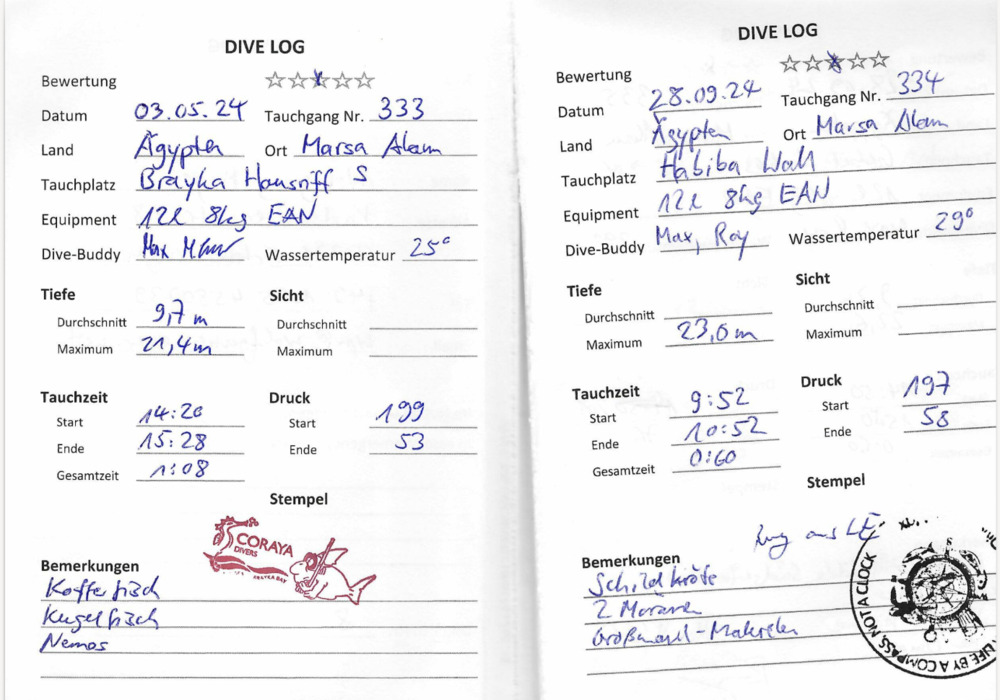 DIVE LOG
Bewertung
Datum 03.05.24 Tauchgang Nr. 333
Land Ägypten Ort Marsa Alam
Tauchplatz Brayka Hausriff S
Equipment 12l 8kg EAN
Dive-Buddy Max Wassertemperatur 25°
Tiefe Sicht
Durchschnitt 9,7 m Durchschnitt
Maximum 21,4m Maximum
Tauchzeit Druck
Start 14:20 Start 199
Ende 15:28 Ende 53
Gesamtzeit 1:08
Stempel
CORAYA
DIVERS
BRAYKA BAY
Bemerkungen
Kofferfisch
Kugelfisch
Nemos
DIVE LOG
Bewertung
Datum 28.09.24 Tauchgang Nr. 334
Land Ägypten Ort Marsa Alam
Tauchplatz Habiba Wall
Equipment 12l 8kg EAN
Dive-Buddy Max, Roy Wassertemperatur 29°
Tiefe Sicht
Durchschnitt Durchschnitt
Maximum 23,0m Maximum
Tauchzeit Druck
Start 9:52 Start 197
Ende 10:52 Ende 58
Gesamtzeit 0:60
Stempel
aus LE
LIFE BY A COMPASS, NOT A CLOCK
Bemerkungen
Schildkröte
2 Muränen
Großmaul-Makrelen